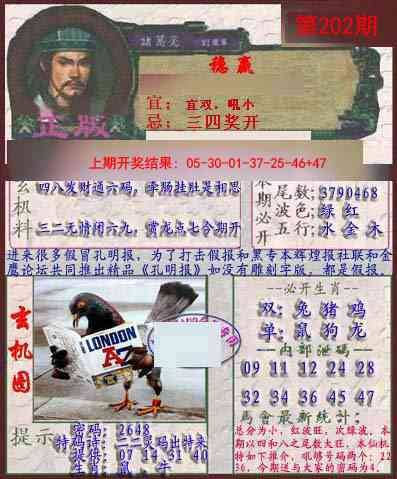 第202期
諸葛亮
稳赢
宜：宜双，吼小
正版
忌：三四奖开
上期开奖结果：05-30-01-37-25-46+47
玄机料
四八发财通六码，季肠挂肚是相思
三二元情闭六九，赏龙点七今期开
本期必开
尾数：3790468
波色：绿 红
五行：水 金 木
进来很多假冒孔明报，为了打击假报和黑专本辉煌报社联和金
鹰论坛共同推出精品《孔明报》如没有雕刻字版，都是假报。
玄机图
LONDON
A
--必开生肖--
双：兔 猪 鸡
单：鼠 狗 龙
--内部泄码--
09 11 12 24 28
32 34 36 45 47
马會最新統計：
总分为小，红波旺，次绿波，本
期以四和八之尾数大旺，本仙机
特如下推介，吼够号码两个：22
36，今期送与大家的密码为4。
提示
密码：2648
特码诗：二二灵码出特来
提供：07 14 31 40
生肖：鼠、牛